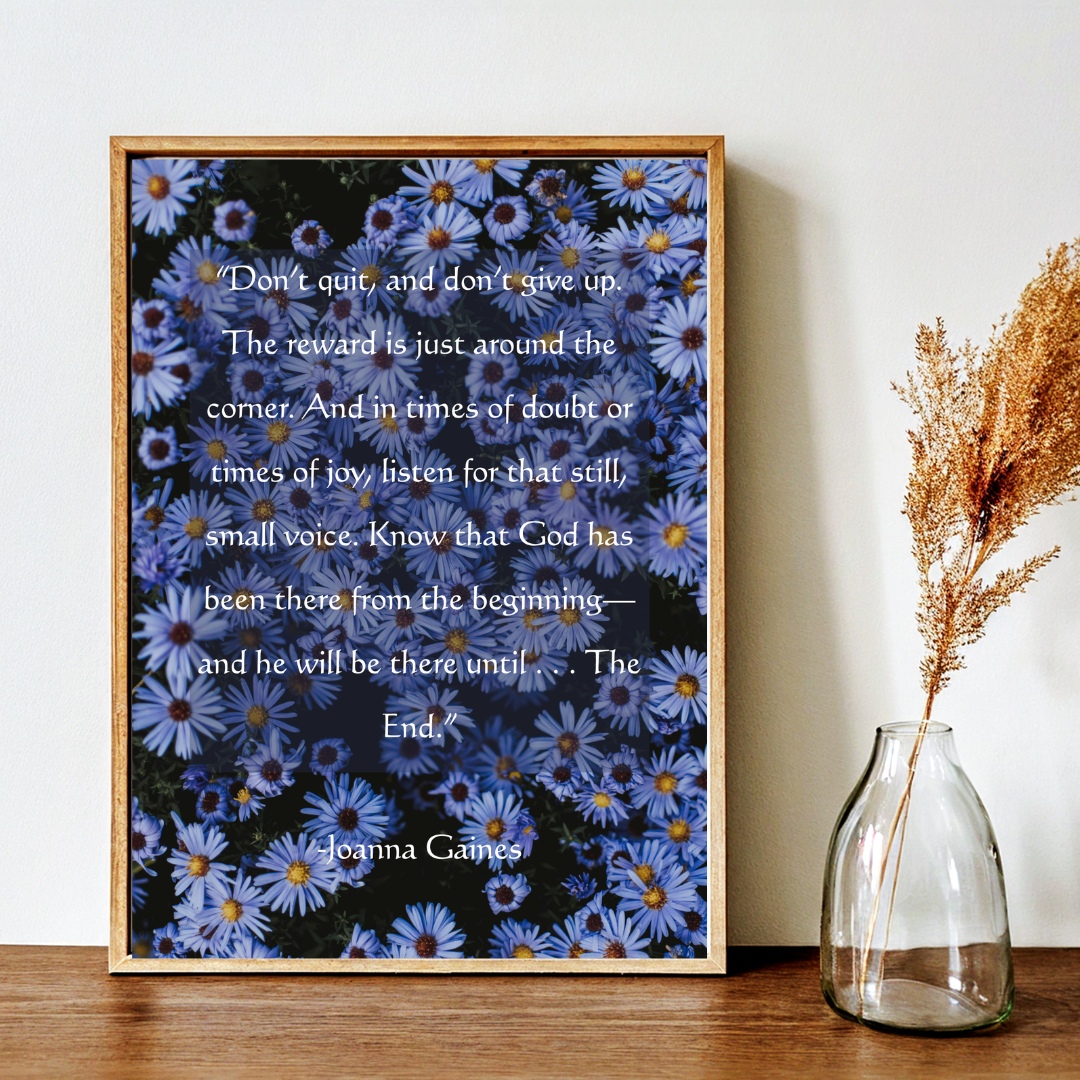 “Don’t quit, and don’t give up.
The reward is just around the
corner. And in times of doubt or
times of joy, listen for that still,
small voice. Know that God has
been there from the beginning—
and he will be there until . . . The
End.”
-Joanna Gaines